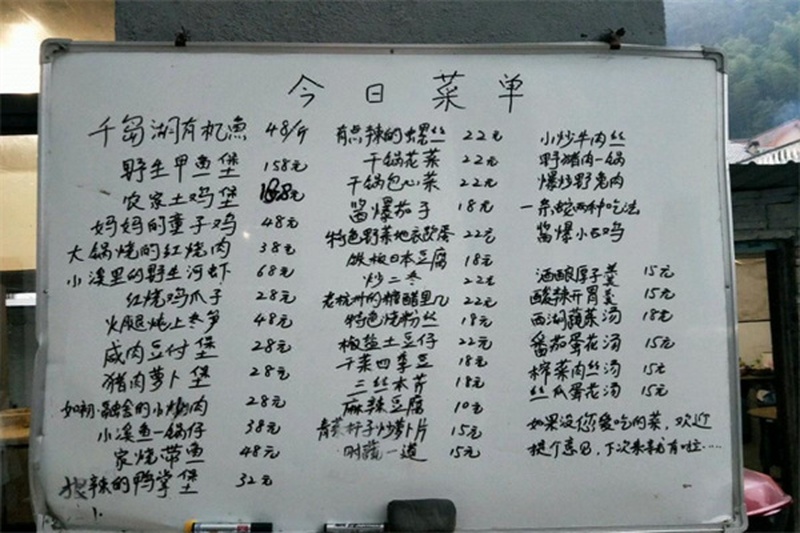 今日菜单
千岛湖有机鱼 48/斤
野生甲鱼堡 158元
农家土鸡堡 元
妈妈的童子鸡 48元
大锅烧的红烧肉 38元
小溪里的野生河虾 68元
红烧鸡爪子 28元
火腿炖上冬笋 48元
咸肉豆付堡 28元
猪肉萝卜堡 28元
的小炒肉 28元
小溪鱼一锅仔 38元
家烧带鱼 48元
辣的鸭掌堡 32元
有点辣的螺丝 22元
干锅花菜 22元
干锅包心菜 22元
酱爆茄子 18元
特色野菜地衣炒蛋 22元
铁板日本豆腐 18元
炒二冬 22元
老杭州的糖醋里几 22元
特色烧粉丝 18元
椒盐土豆仔 22元
干菜四季豆 18元
三丝本芹 18元
麻辣豆腐 10元
青菜杆子炒萝卜片 15元
时蔬一道 15元
小炒牛肉丝
野猪肉一锅
爆炒野兔肉
一条蛇两种吃法
酱爆小石鸡
酒酿厚子羹 15元
酸辣开胃羹 15元
西湖蔬菜汤 18元
番茄蛋花汤 15元
榨菜肉丝汤 15元
丝瓜蛋花汤 15元
如果没您爱吃的菜，欢迎
提个意见，下次来就有啦……